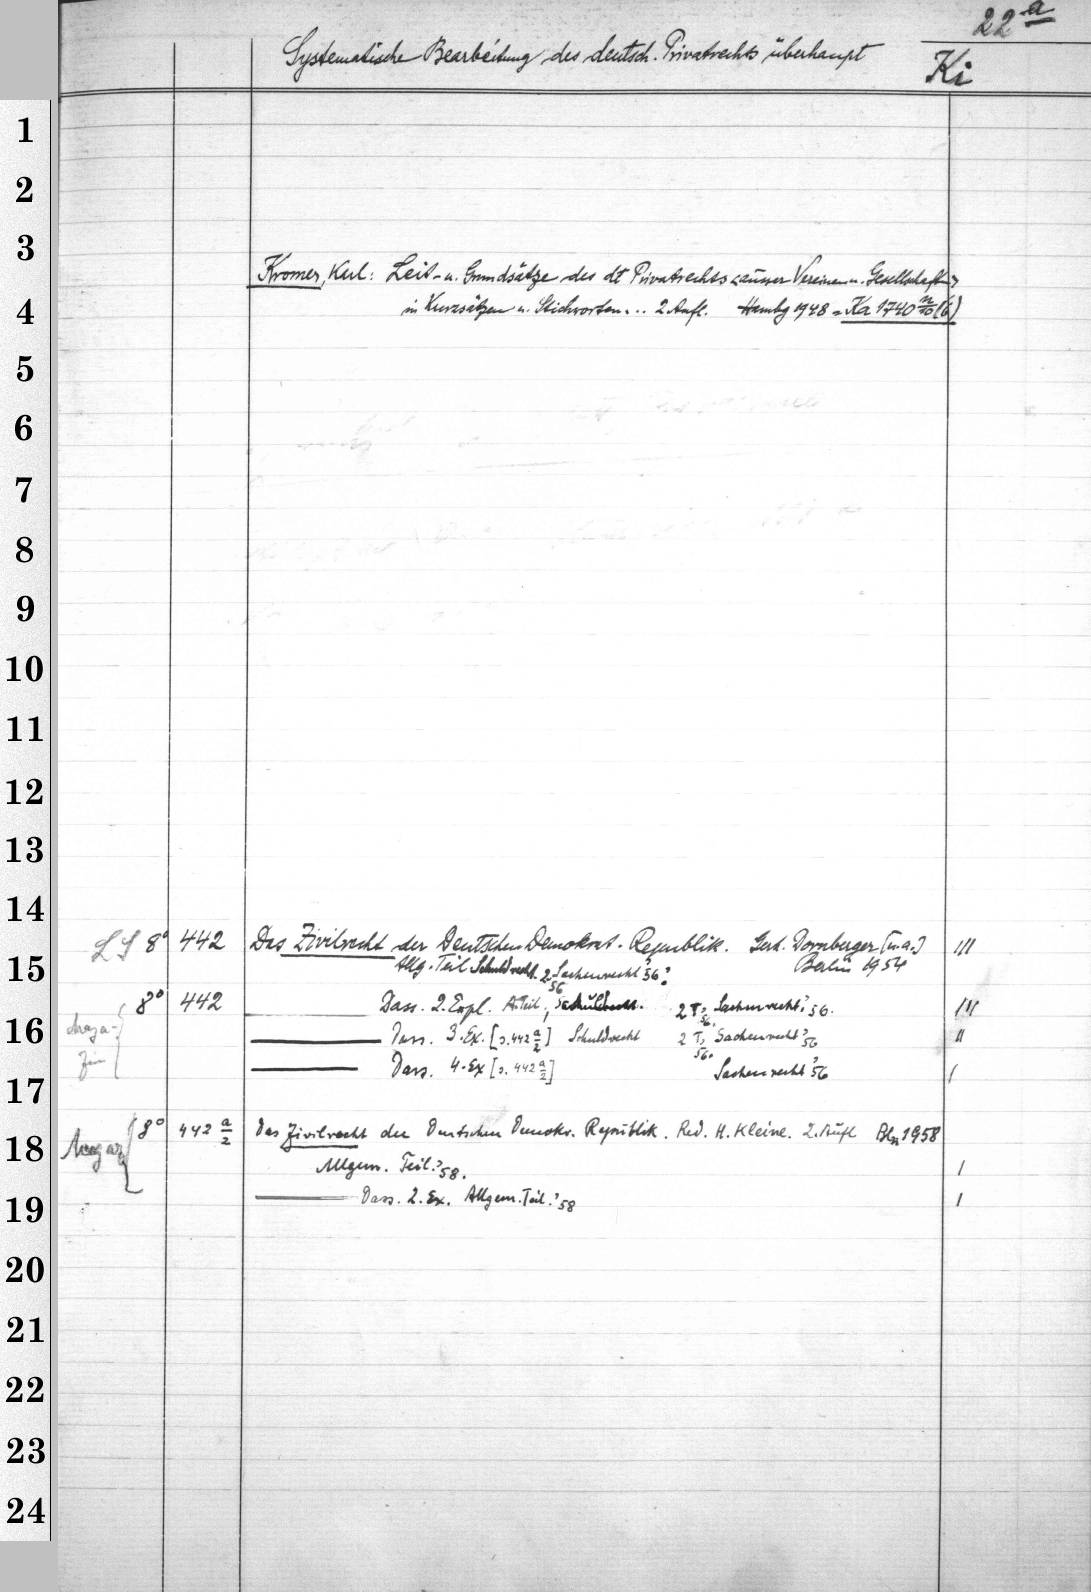 22 a
Systematische Bearbeitung des deutsch. Privatrechts überhaupt
Ki
1
2
3
Kromer, Karl: Leit- u. Grundsätze des dt Privatrechts <ausser Vereinen u. Gesellschaften>
4
in Kurzsätzen u. Stichworten... 2. Aufl. Hambg 1948 = Ka 1740 n/10 (6)
5
6
7
8
9
10
11
12
13
14
LS 8° 442 Das Zivilrecht der Deutschen Demokrat. Republik. Gert. Dornberger [u.a.] III
Berlin 1954
15
Allg. Teil Schuldrecht. 2 56 Sachenrecht '56.
8° 442 Dass. 2. Expl. A. Teil, Schuldrecht. 2 T, 56. Sachenrecht '56. III
16
Maga-
zin
Dass. 3. Ex. [s. 442 a/2] Schuldrecht 2 T, 56. Sachenrecht '56 II
Dass. 4. Ex [s. 442 a/2] Sachenrecht '56 I
17
Magaz 8° 442 a/2 Das Zivilrecht der Deutschen Demokr. Republik. Red. H. Kleine. 2. Aufl Bln 1958
18
Allgem. Teil. '58. I
19
Dass. 2. Ex. Allgem. Teil. '58 I
20
21
22
23
24